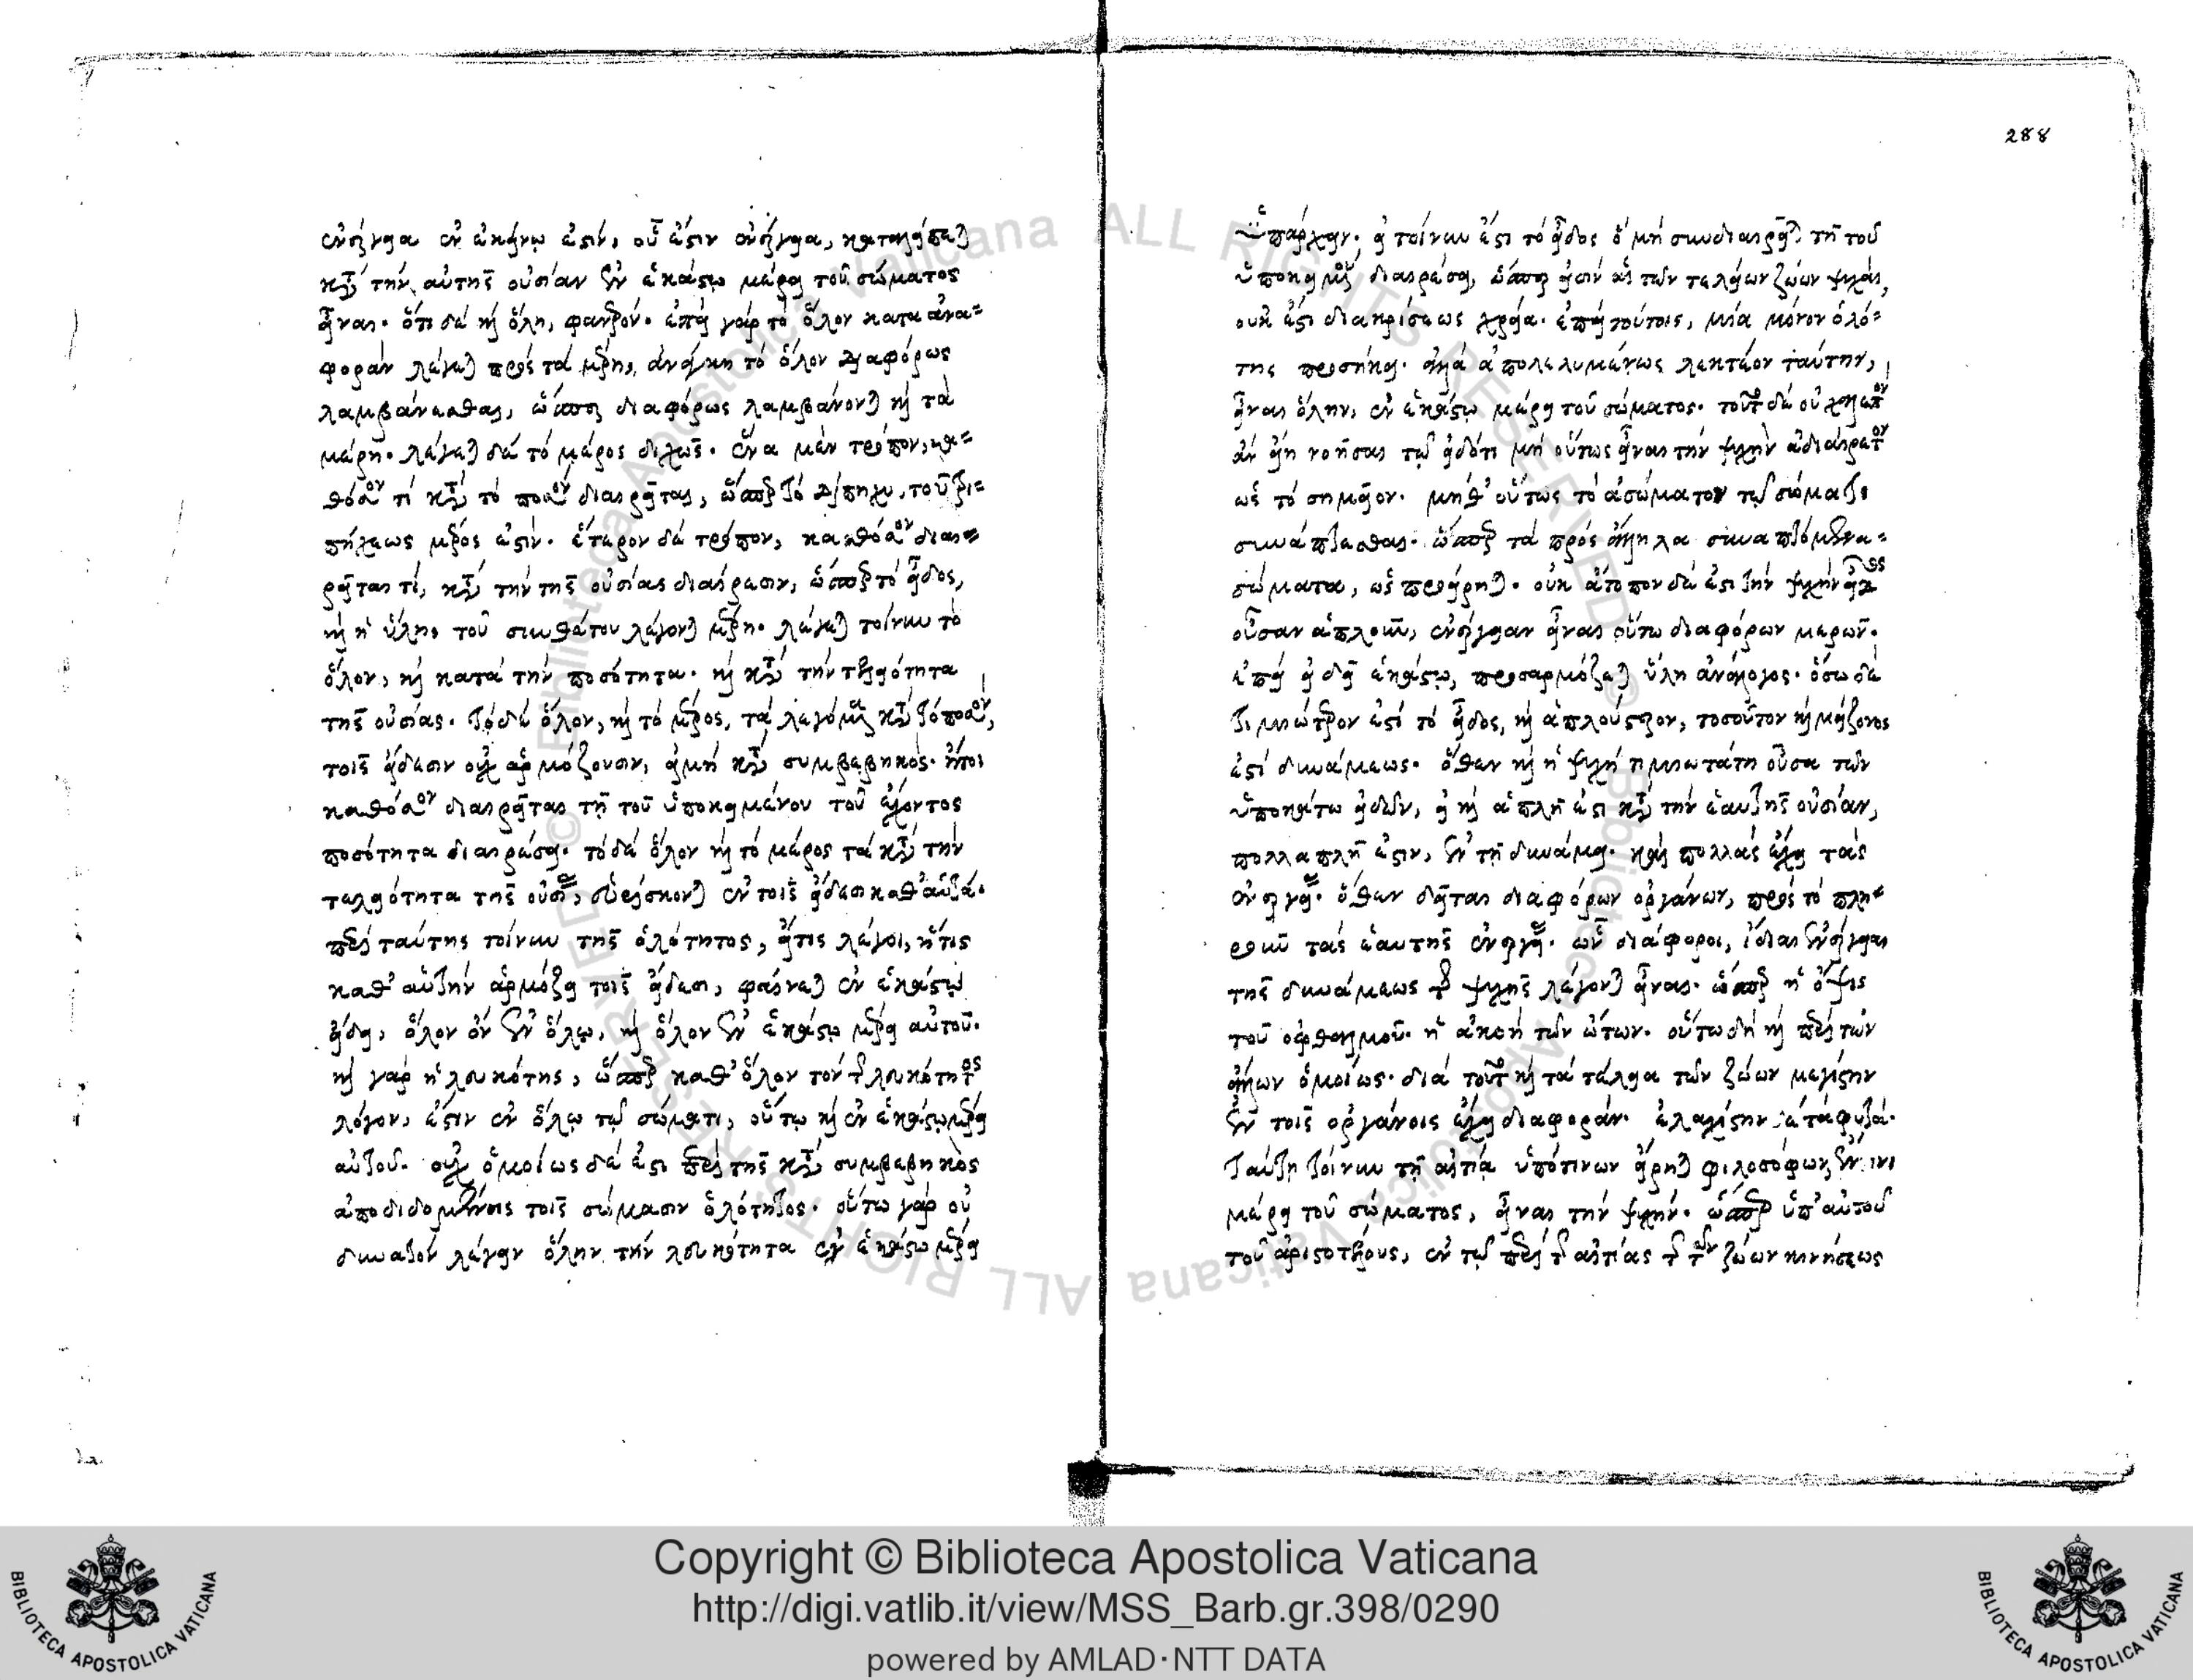 ἐνέργεια ἐν ἐκείνῳ ἐστίν, οὗ ἐστιν ἐνέργεια, καταλείπεται
κατὰ τὴν αὐτῆς οὐσίαν ἐν ἑκάστῳ μέρει τοῦ σώματος
εἶναι· ὅτι δὲ καὶ ὅλη, φανερόν· ἐπεὶ γὰρ τὸ ὅλον κατα ἀνα=
φορὰν λέγεται πρὸς τὰ μέρη, ἀνάγκη τὸ ὅλον διαφόρως
λαμβάνεσθαι, ὥσπερ διαφόρως λαμβάνονται καὶ τὰ
μέρη· λέγεται δὲ τὸ μέρος διχῶς· ἕνα μὲν τρόπον, κα=
θόσον τί κατὰ τὸ ποσὸν διαιρεῖται, ὥσπερ τὸ δίπηχυ, τοῦ τρι=
πήχεως μέρος ἐστίν· ἕτερον δὲ τρόπον, καθόσον διαι=
ρεῖται τί, κατὰ τὴν τῆς οὐσίας διαίρεσιν, ὥσπερ τὸ εἶδος,
καὶ ἡ ὕλη, τοῦ συνθέτου λέγονται μέρη· λέγεται τοίνυν τὸ
ὅλον, καὶ κατὰ τὴν ποσότητα· καὶ κατὰ τὴν τελειότητα
τῆς οὐσίας. τὸ δὲ ὅλον, καὶ τὸ μέρος, τὰ λεγόμενα κατὰ τὸ ποσόν,
τοῖς εἴδεσιν οὐχ ἁρμόζουσιν, εἰ μὴ κατὰ συμβεβηκός· ἤτοι
καθόσον διαιρεῖται τῇ τοῦ ὑποκειμένου τοῦ ἔχοντος
ποσότητα διαιρέσει· τὸ δὲ ὅλον καὶ τὸ μέρος τὰ κατὰ τὴν
τελειότητα τῆς οὐσίας, εὑρίσκονται ἐν τοῖς εἴδεσι καθ' αὑτά.
περὶ ταύτης τοίνυν τῆς ὁλότητος, εἴτις λέγοι, ἥτις
καθ' αὑτὴν ἁρμόζει τοῖς εἴδεσι, φαίνεται ἐν ἑκάστῳ
εἴδει, ὅλον ὂν ἐν ὅλῳ, καὶ ὅλον ἐν ἑκάστῳ μέρει αὐτοῦ.
καὶ γὰρ ἡ λευκότης, ὥσπερ καθ' ὅλον τὸν τῆς λευκότητος
λόγον, ἐστὶν ἐν ὅλῳ τῷ σώματι, οὕτω καὶ ἐν ἑκάστῳ μέρει
αὐτοῦ. οὐχ ὁμοίως δέ ἐστι περὶ τῆς κατὰ συμβεβηκὸς
ἀποδιδομένης τοῖς σώμασιν ὁλότητος· οὕτω γὰρ οὐ
δυνατὸν λέγειν ὅλην τὴν λευκότητα ἐν ἑκάστῳ μέρει
288
ὑπάρχειν· εἰ τοίνυν ἐστὶ τὸ εἶδος ὃ μὴ συνδιαιρεῖται τῇ τοῦ
ὑποκειμένου διαιρέσει, ὥσπερ εἰσὶν αἱ τῶν τελείων ζώων ψυχαὶ,
οὐκ ἔστι διακρίσεως χρεία· ἐπεὶ τούτοις, μία μόνον ὁλό=
της προσήκει· ἀλλὰ ἀπολελυμένως λεκτέον ταύτην,
εἶναι ὅλην, ἐν ἑκάστῳ μέρει τοῦ σώματος. τοῦτο δὲ οὐ χαλεπὸν
ἂν εἴη νοῆσαι τῷ εἰδότι μὴ οὕτως εἶναι τὴν ψυχὴν ἀδιαίρετον
ὡς τὸ σημεῖον· μήθ' οὕτως τὸ ἀσώματον τῷ σώματι
συνάπτεσθαι· ὥσπερ τὰ πρὸς ἄλληλα συναπτόμενα=
σώματα, ὡς προείρηται· οὐκ ἄτοπον δέ ἐστι τὴν ψυχὴν εἶδος
οὖσαν ἁπλοῦν, ἐνέργειαν εἶναι οὕτω διαφόρων μερῶν·
ἐπεὶ εἴδει ἑκάστῳ, προσαρμόζεται ὕλη ἀνάλογος· ὅσω δὲ
τιμιώτερον ἐστὶ τὸ εἶδος, καὶ ἁπλούστερον, τοσοῦτον καὶ μείζονος
ἐστὶ δυνάμεως· ὅθεν καὶ ἡ ψυχὴ τιμιωτάτη οὖσα τῶν
ὑποκάτω εἰδῶν, εἰ καὶ ἁπλῆ ἐστι κατὰ τὴν ἑαυτῆς οὐσίαν,
πολλαπλῆ ἐστιν, ἐν τῇ δυνάμει· καὶ πολλὰς ἔχει τὰς
ἐνεργείας· ὅθεν δεῖται διαφόρων ὀργάνων, πρὸς τὸ πλη=
ροῦν τὰς ἑαυτῆς ἐνεργείας· ὧν διάφοροι, ἴδιαι ἐνέργειαι
τῆς δυνάμεως τῆς ψυχῆς λέγονται εἶναι· ὥσπερ ἡ ὄψις
τοῦ ὀφθαλμοῦ· ἡ ἀκοὴ τῶν ὤτων· οὕτω δὴ καὶ περὶ τῶν
ἄλλων ὁμοίως· διὰ τοῦτο καὶ τὰ τέλεια τῶν ζώων μεγίστην
ἐν τοῖς ὀργάνοις ἔχει διαφοράν· ἐλαχίστην δὲ τὰ φυτά.
ταύτῃ τοίνυν τῇ αἰτίᾳ ὑπό τινων εἴρηται φιλοσόφων, ἔν τινι
μέρει τοῦ σώματος, εἶναι τὴν ψυχήν· ὥσπερ ὑπ' αὐτοῦ
τοῦ ἀριστοτέλους, ἐν τῷ περὶ τῆς αἰτίας τῆς τῶν ζώων κινήσεως
Copyright © Biblioteca Apostolica Vaticana
http://digi.vatlib.it/view/MSS_Barb.gr.398/0290
powered by AMLAD·NTT DATA
BIBLIOTECA APOSTOLICA VATICANA
BIBLIOTECA APOSTOLICA VATICANA
© Biblioteca Apostolica Vaticana ALL RIGHTS RESERVED
© Biblioteca Apostolica Vaticana ALL RIGHTS RESERVED